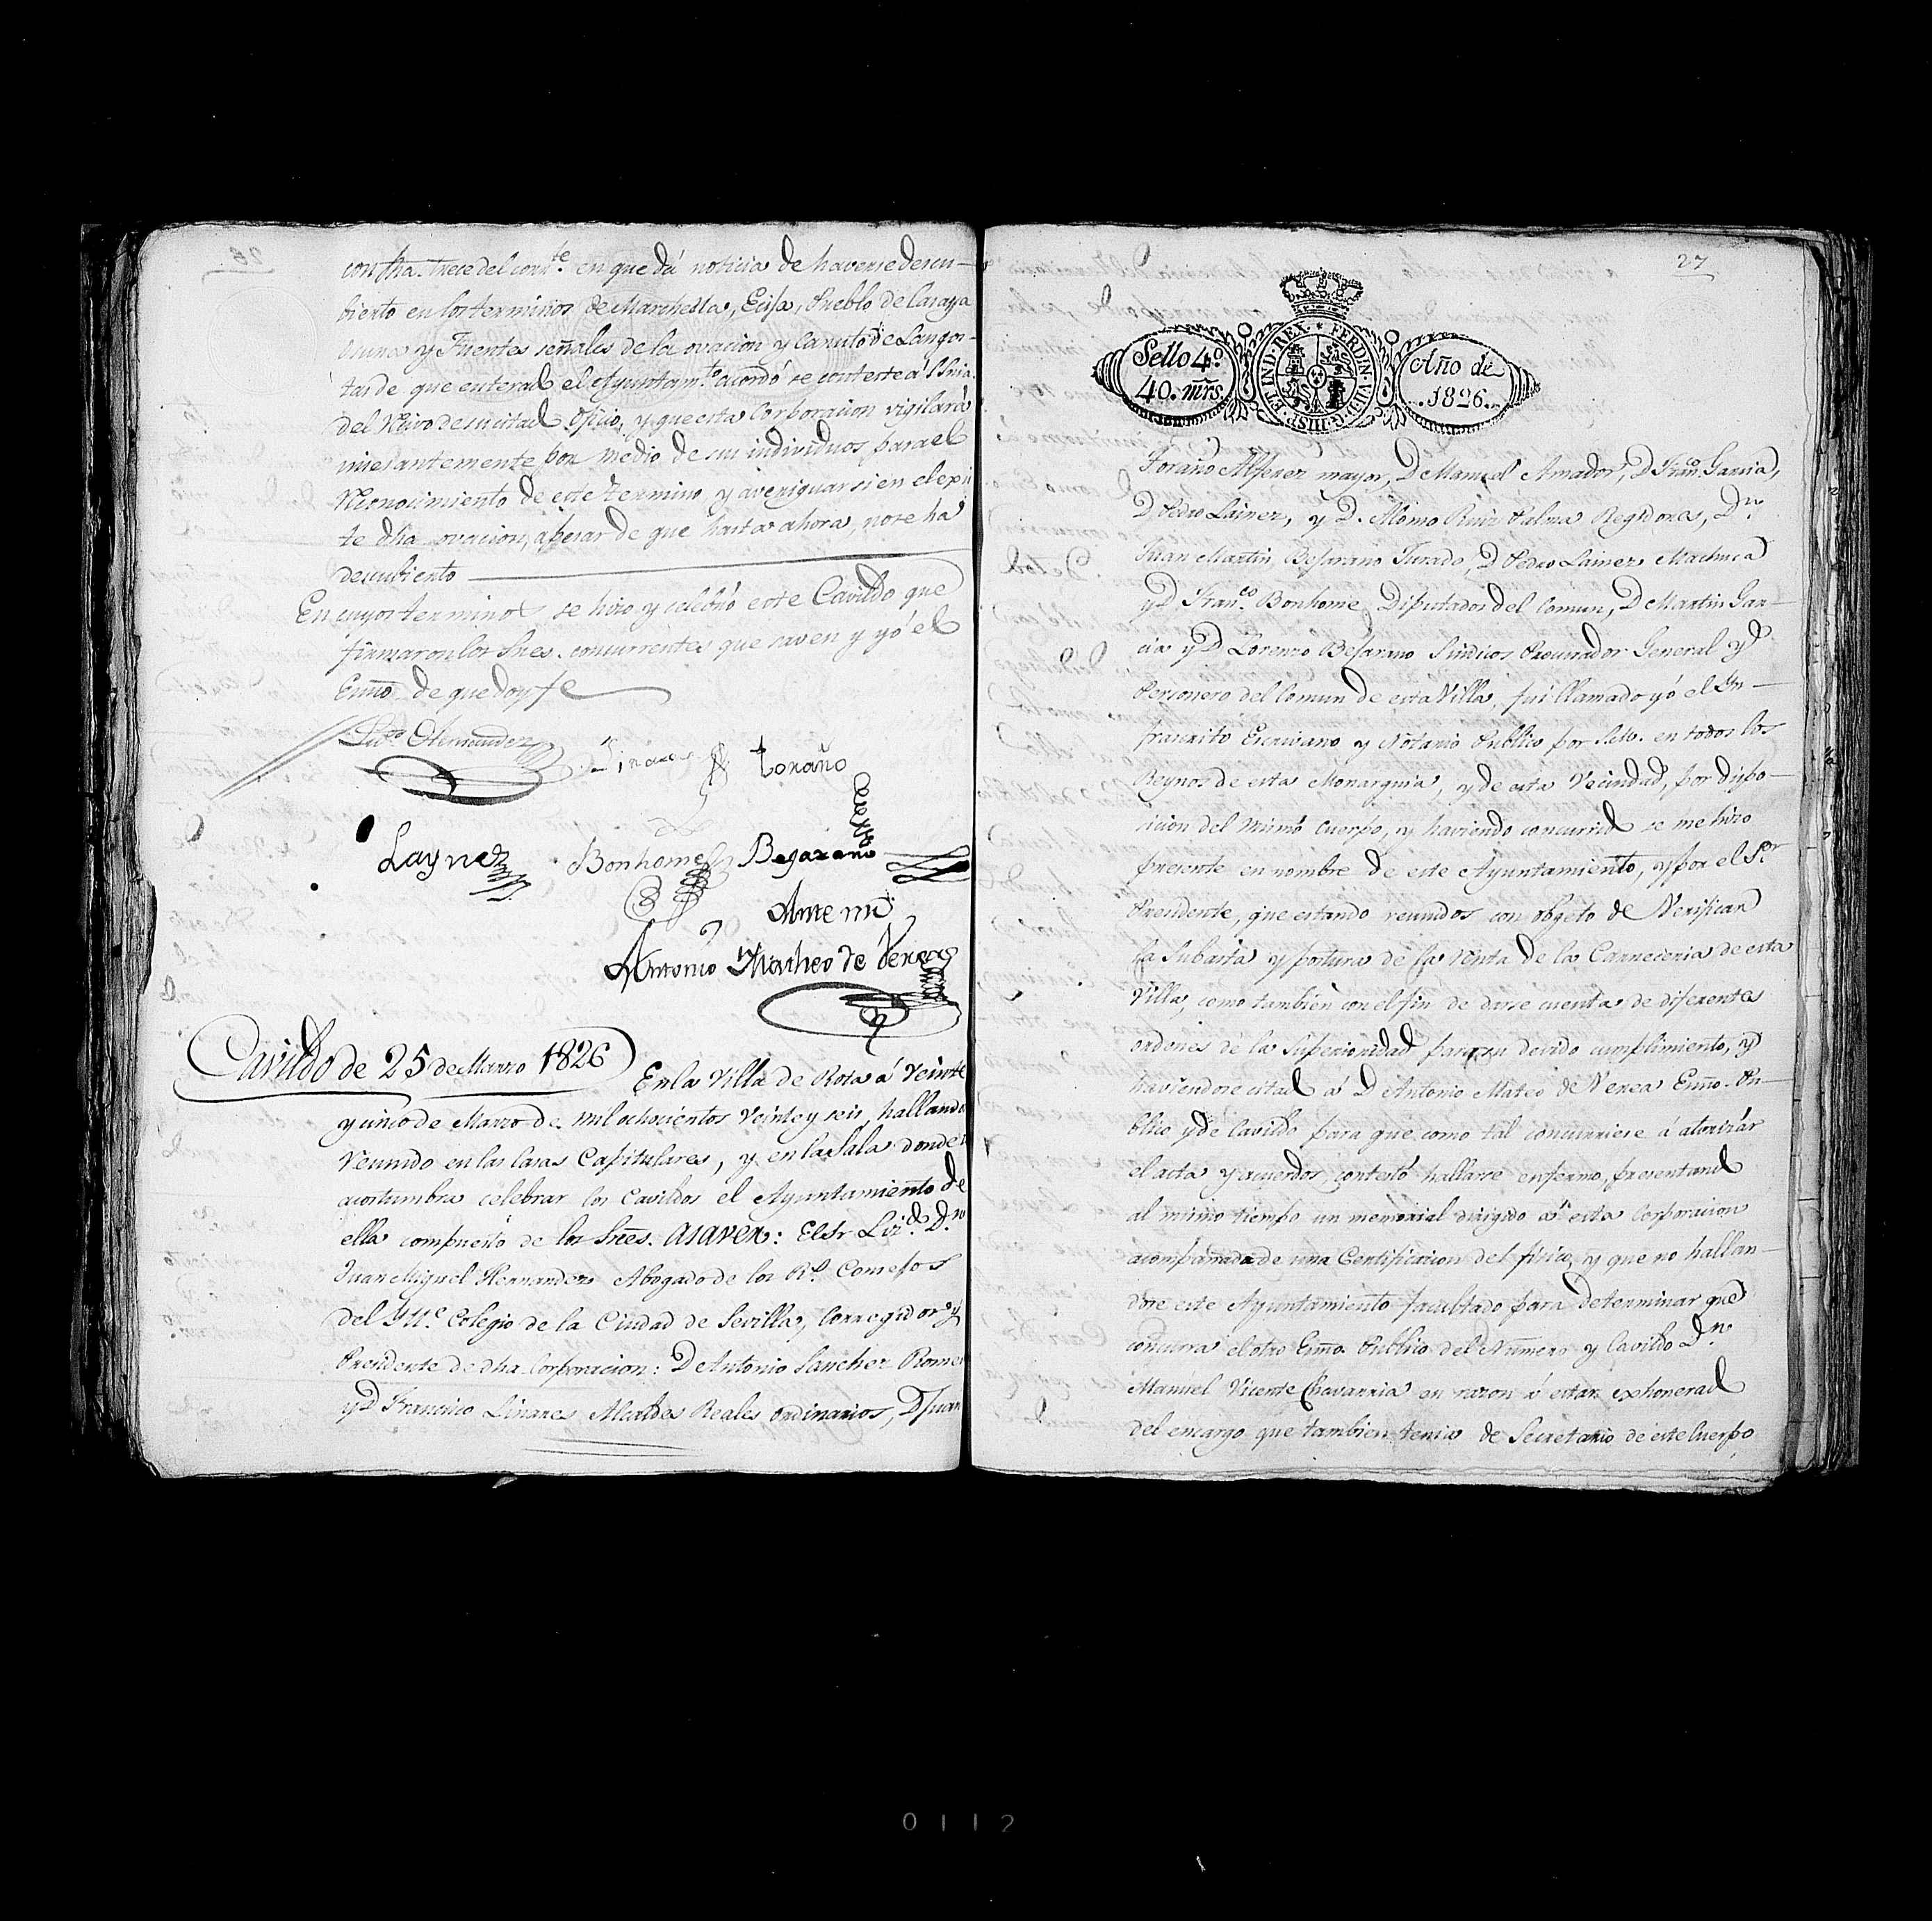 con fha. trece del corrte. en que dá noticia de haverse descu-
bierto en los terminos de Marchella, Ecija, Pueblo de Cazaya
Osuna y Fuentes señales de la ovacion y Canuto de Langos-
ta: de que enterad el Ayuntamto. acordó se conteste a SSria.
del Recivo de su citad Oficio, y que esta Corporacion vigilará
incesantemente por medio de sus individuos para el
Reconocimiento de este termino y averiguar si en el exis
te dha ovacion, apesar de que hasta ahora no se ha
descubierto
En cuyos terminos se hizo y celebró este Cavildo que
firmaron los Sres. concurrentes que saven y yó el
Essno de que doy fe
Licdo. Hernandez Linares Toraño
Laynez Bonhome Begarano
Ante mi
Antonio Matheo de Verea
Cavildo de 25 de Marzo 1826 En la Villa de Rota á Veinte
y cinco de Marzo de mil ochocientos Veinte y seis, hallando
Reunido en las Casas Capitulares, y en la Sala donde
acostumbra celebrar los Cavildos el Ayuntamiento de
ella compuesto de los Sres. asaver: El Sr Licdo. Dn
Juan Miguel Hernandez Abogado de los Rs. Consejos
del Ille. Colegio de la Ciudad de Sevilla, Corregidor y
Presidente de dha. Corporacion: D Antonio Sanchez Rome
y D Francisco Linares Alcaldes Reales ordinarios, D Juan
27
Sello 4o.
40. mrs.
HISP. ET IND. REX. * FERDIN. VII. D. G.
Año de
1826.
Toraño Alferez mayor, D Manuel Amador, D Fran. Garcia,
D Pedro Lainez, y D. Alonso Ruiz Palma Regidores, Dn
Juan Martin Bejarano Jurado, D Pedro Lainez Machuca
y D Franco. Bonhome Diputados del Comun, D Martin Gar-
cia y D Lorenzo Bejarano Sindicos Procurador General y
Personero del Comun de esta Villa, fui llamado yó el In-
franxito Escrivano y Notario Publico por S.M. en todos los
Reynos de esta Monarquia, y de esta Vecindad, por dispo-
sicion del mismo Cuerpo, y haviendo concurrid se me hizo
presente en nombre de este Ayuntamiento, y por el Sor
Presidente, que estando reunidos con objeto de Verificar
la Subasta y postura de la Renta de la Carneceria de esta
Villa, como tambien con el fin de darse cuenta de diferentes
ordenes de la Superioridad para su devido cumplimiento, y
haviendose citad á D Antonio Mateo de Verea Essno. Pu-
blico y de Cavildo para que como tal concurriese á atorizar
el acta y acuerdos, contestó hallarse enfermo, presentand
al mismo tiempo un memorial dirigido á esta Corporacion
acompañada de una Certificacion del fisico, y que no hallan-
dose este Ayuntamiento facultado para determinar que
concurra el otro Essno. Publico del Numero y Cavildo Dn
Manuel Vicente Chavarria en razon á estar exhonerad
del encargo que tambien tenia de Secretario de este Cuerpo
0112